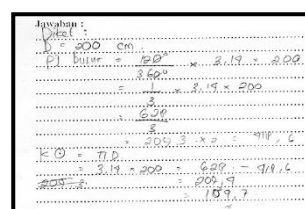 Jawaban :
Diket :
D = 200 cm
Pj busur = 120° / 360° × 3,14 × 200
= 1 / 3 × 3,14 × 200
= 628 / 3
= 209,3 × 2 = 418,6
K ⊙ = π D
= 3,14 × 200 = 628 - 418,6
= 209,4